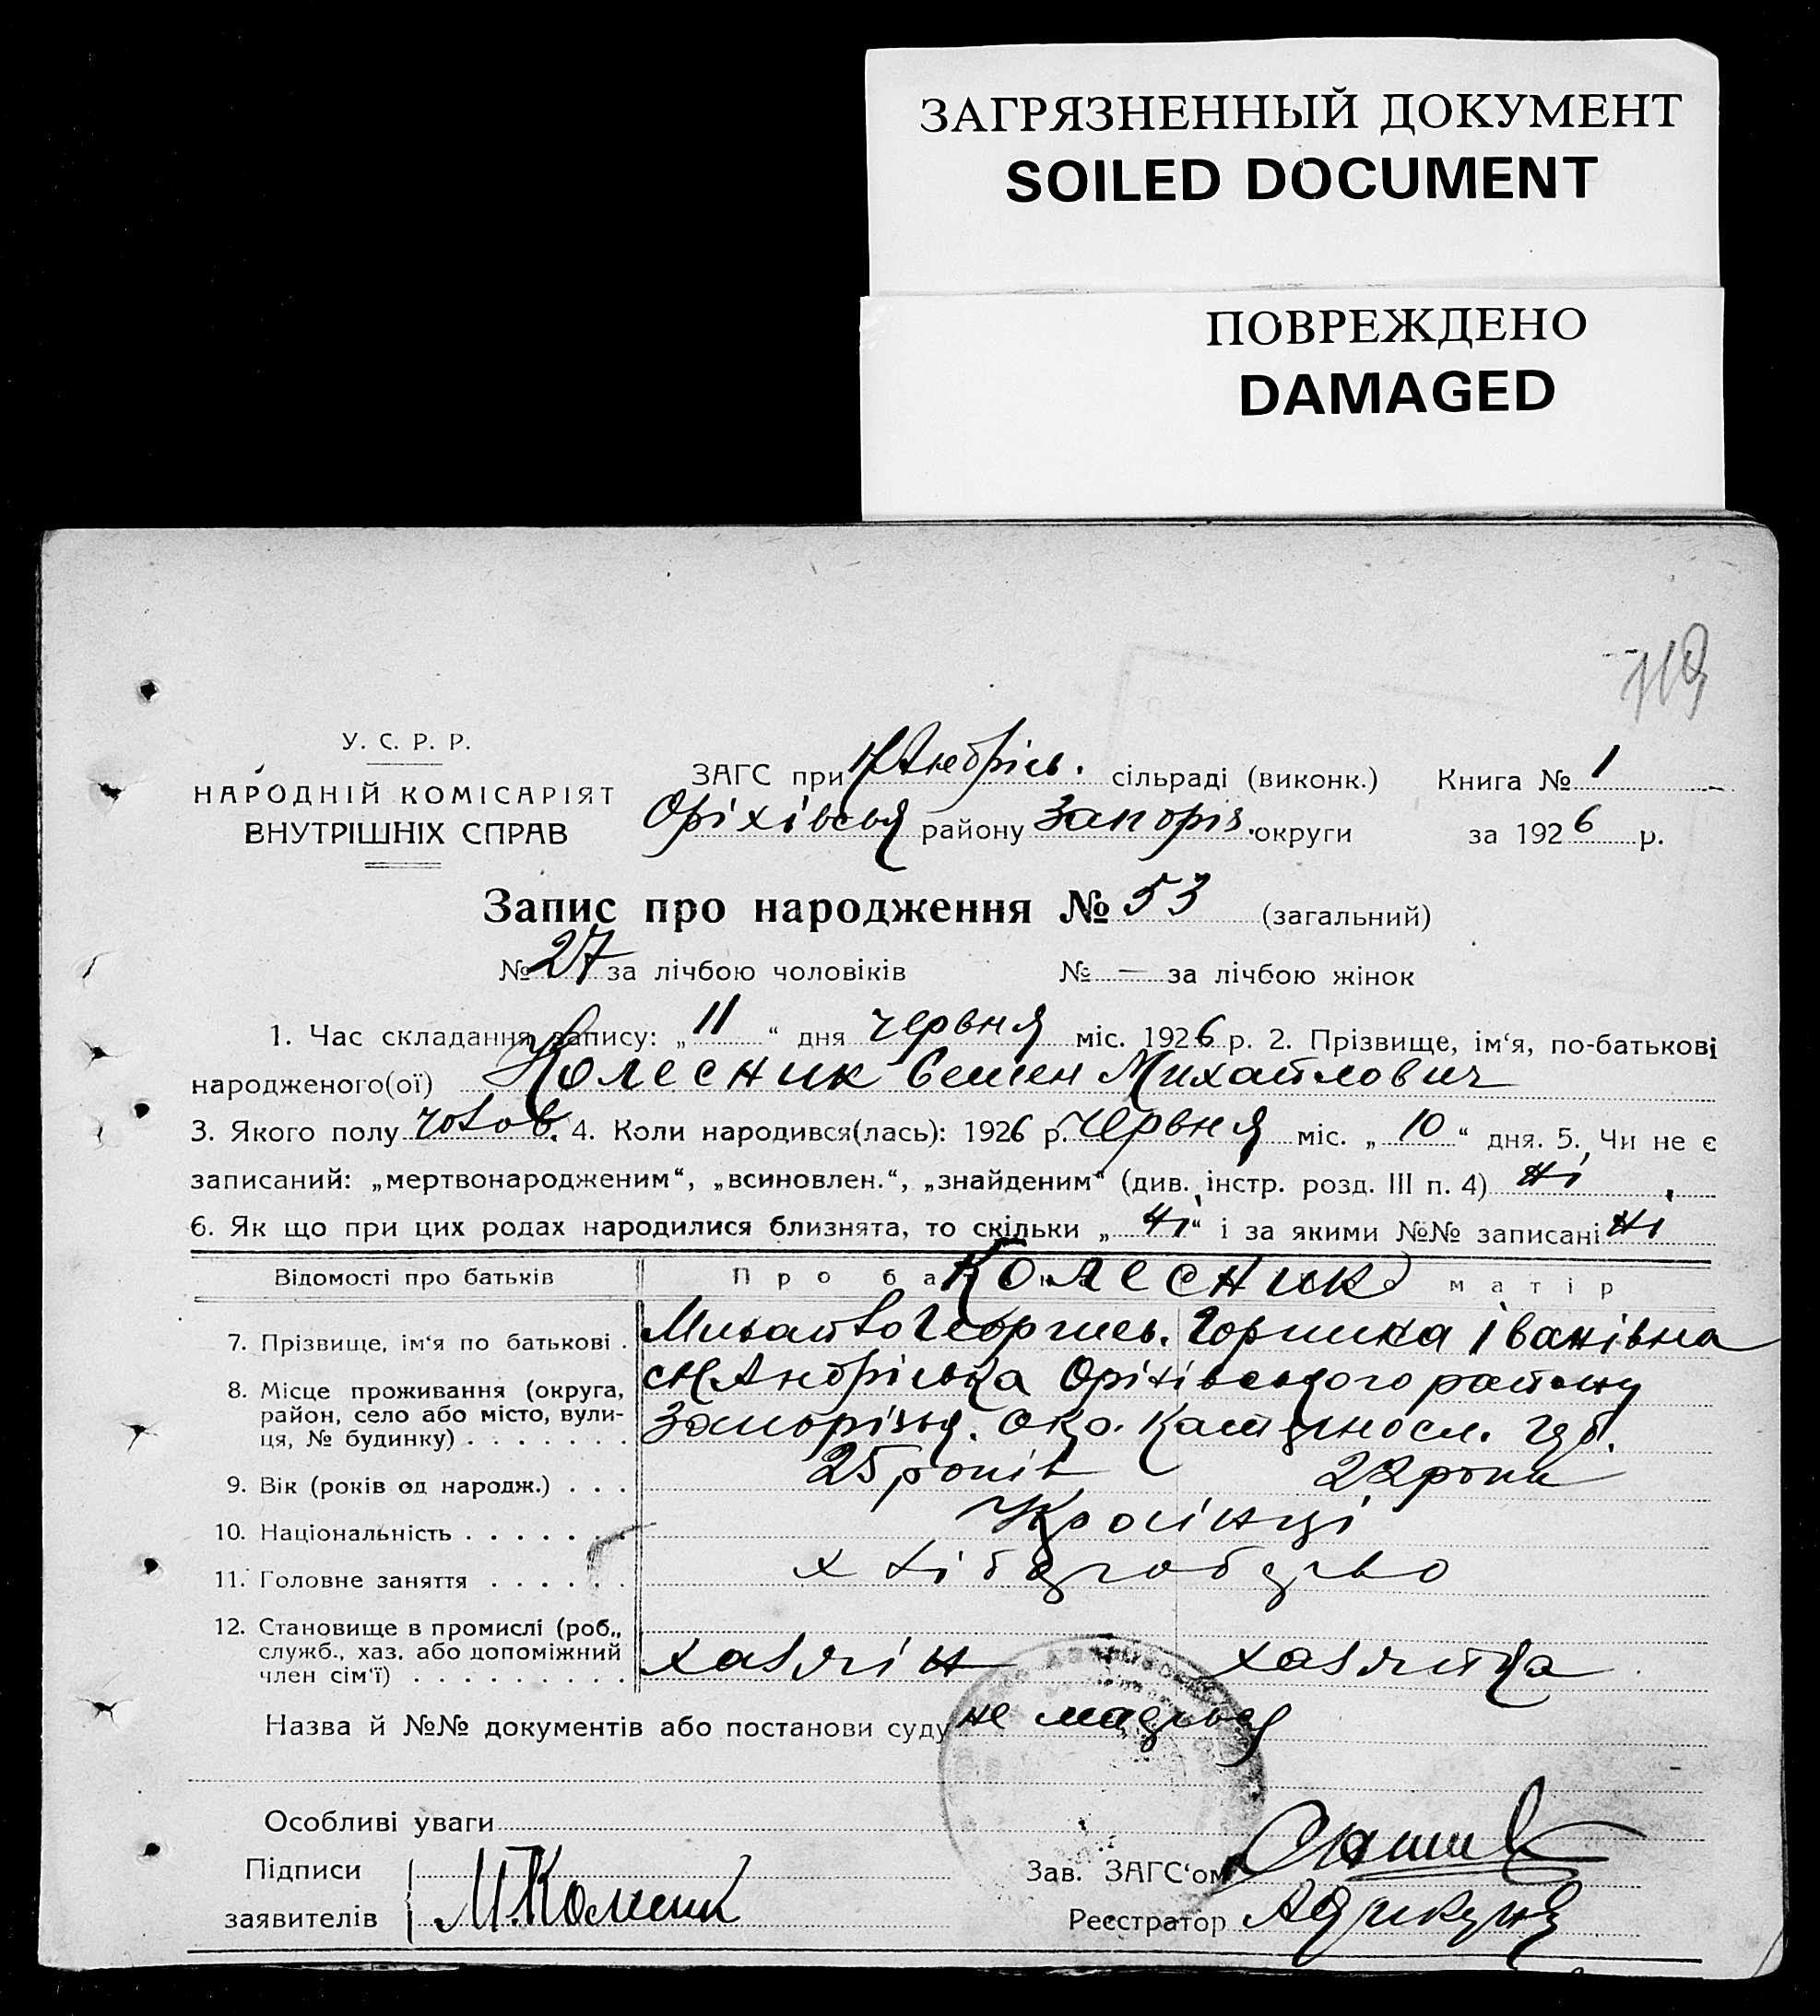 ЗАГРЯЗНЕННЫЙ ДОКУМЕНТ
SOILED DOCUMENT
ПОВРЕЖДЕНО
DAMAGED
У. С. Р. Р.
НАРОДНІЙ КОМІСАРІЯТ
ВНУТРІШНІХ СПРАВ
ЗАГС при Н Андрієв. сільраді (виконк.) Книга № 1
району Запоріз. округи за 1926 р.
Запис про народження № 53 (загальний)
№ 27 за лічбою чоловіків № — за лічбою жінок
1. Час складання запису: „ 11 “ дня червня міс. 1926 р. 2. Прізвище, ім‘я, по-батькові
народженого(ої) Колесник Семен Михайлович
3. Якого полу чолов. 4. Коли народився(лась): 1926 р. червня міс. „ 10 “ дня. 5. Чи не є
записаний: „мертвонародженим“, „всиновлен.“, „знайденим“ (див. інстр. розд. III п. 4) ні
6. Як що при цих родах народилися близнята, то скільки „ ні “ і за якими №№ записані ні
Відомості про батьків Про батька Колесник матір
7. Прізвище, ім‘я по батькові . Михайло Георгиев. Іванівна
8. Місце проживання (округа, Оріхівського району
район, село або місто, вули-
ця, № будинку) . . . . . . . окр. губ.
9. Вік (років од народж.) . . . 25 років 22 роки
10. Національність . . . . . . . Українці
11. Головне заняття . . . . . . хлібороб
12. Становище в промислі (роб.,
служб., хаз. або допоміжний
член сім‘ї) . . . . . . . . . хазяін хазяйка
Назва й №№ документів або постанови суду не мається
Особливі уваги
Підписи Зав. ЗАГС‘ом
заявителів М. Колесник Реєстратор